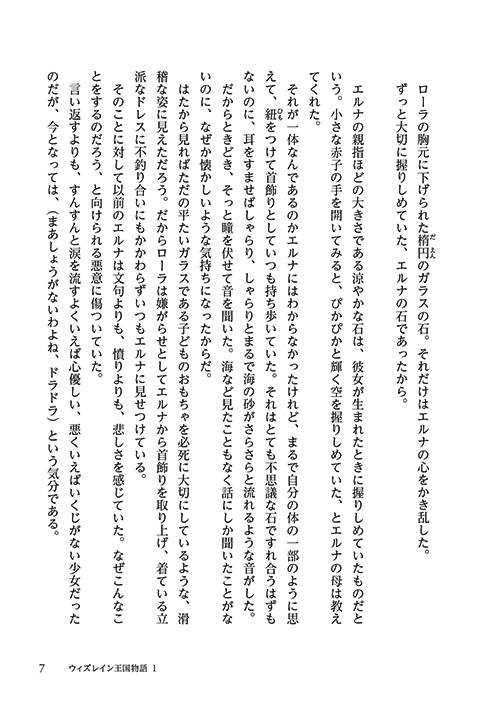 ローラの胸元に下げられた楕円のガラスの石。それだけはエルナの心をかき乱した。
ずっと大切に握りしめていた、エルナの石であったから。
エルナの親指ほどの大きさである涼やかな石は、彼女が生まれたときに握りしめていたものだと
いう。小さな赤子の手を開いてみると、ぴかぴかと輝く空を握りしめていた、とエルナの母は教え
てくれた。
それが一体なんであるのかエルナにはわからなかったけれど、まるで自分の体の一部のように思
えて、紐をつけて首飾りとしていつも持ち歩いていた。それはとても不思議な石ですれ合うはずも
ないのに、耳をすませばしゃらり、しゃらりとまるで海の砂がさらさらと流れるような音がした。
だからときどき、そっと瞳を伏せて音を聞いた。海など見たこともなく話にしか聞いたことがな
いのに、なぜか懐かしいような気持ちになったからだ。
はたから見ればただの平たいガラスである子どものおもちゃを必死に大切にしているような、滑
稽な姿に見えただろう。だからローラは嫌がらせとしてエルナから首飾りを取り上げ、着ている立
派なドレスに不釣り合いにもかかわらずいつもエルナに見せつけている。
そのことに対して以前のエルナは文句よりも、憤りよりも、悲しさを感じていた。なぜこんなこ
とをするのだろう、と向けられる悪意に傷ついていた。
言い返すよりも、すんすんと涙を流すよくいえば心優しい、悪くいえばいくじがない少女だった
のだが、今となっては、（まあしょうがないわよね、ドラドラ）という気分である。
7 ウィズレイン王国物語 1